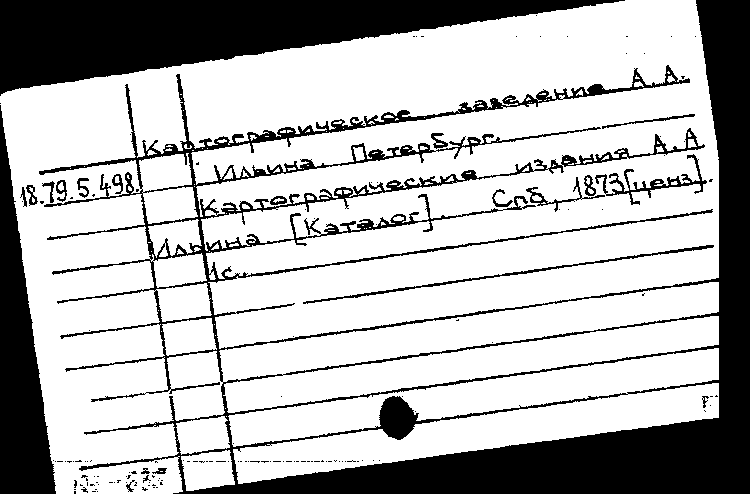 Картографическое заведение А.А.
18.79.5.498. Ильина. Петербург.
Картографические издания А.А
Ильина [Каталог]. Спб, 1873[ценз].
1с.